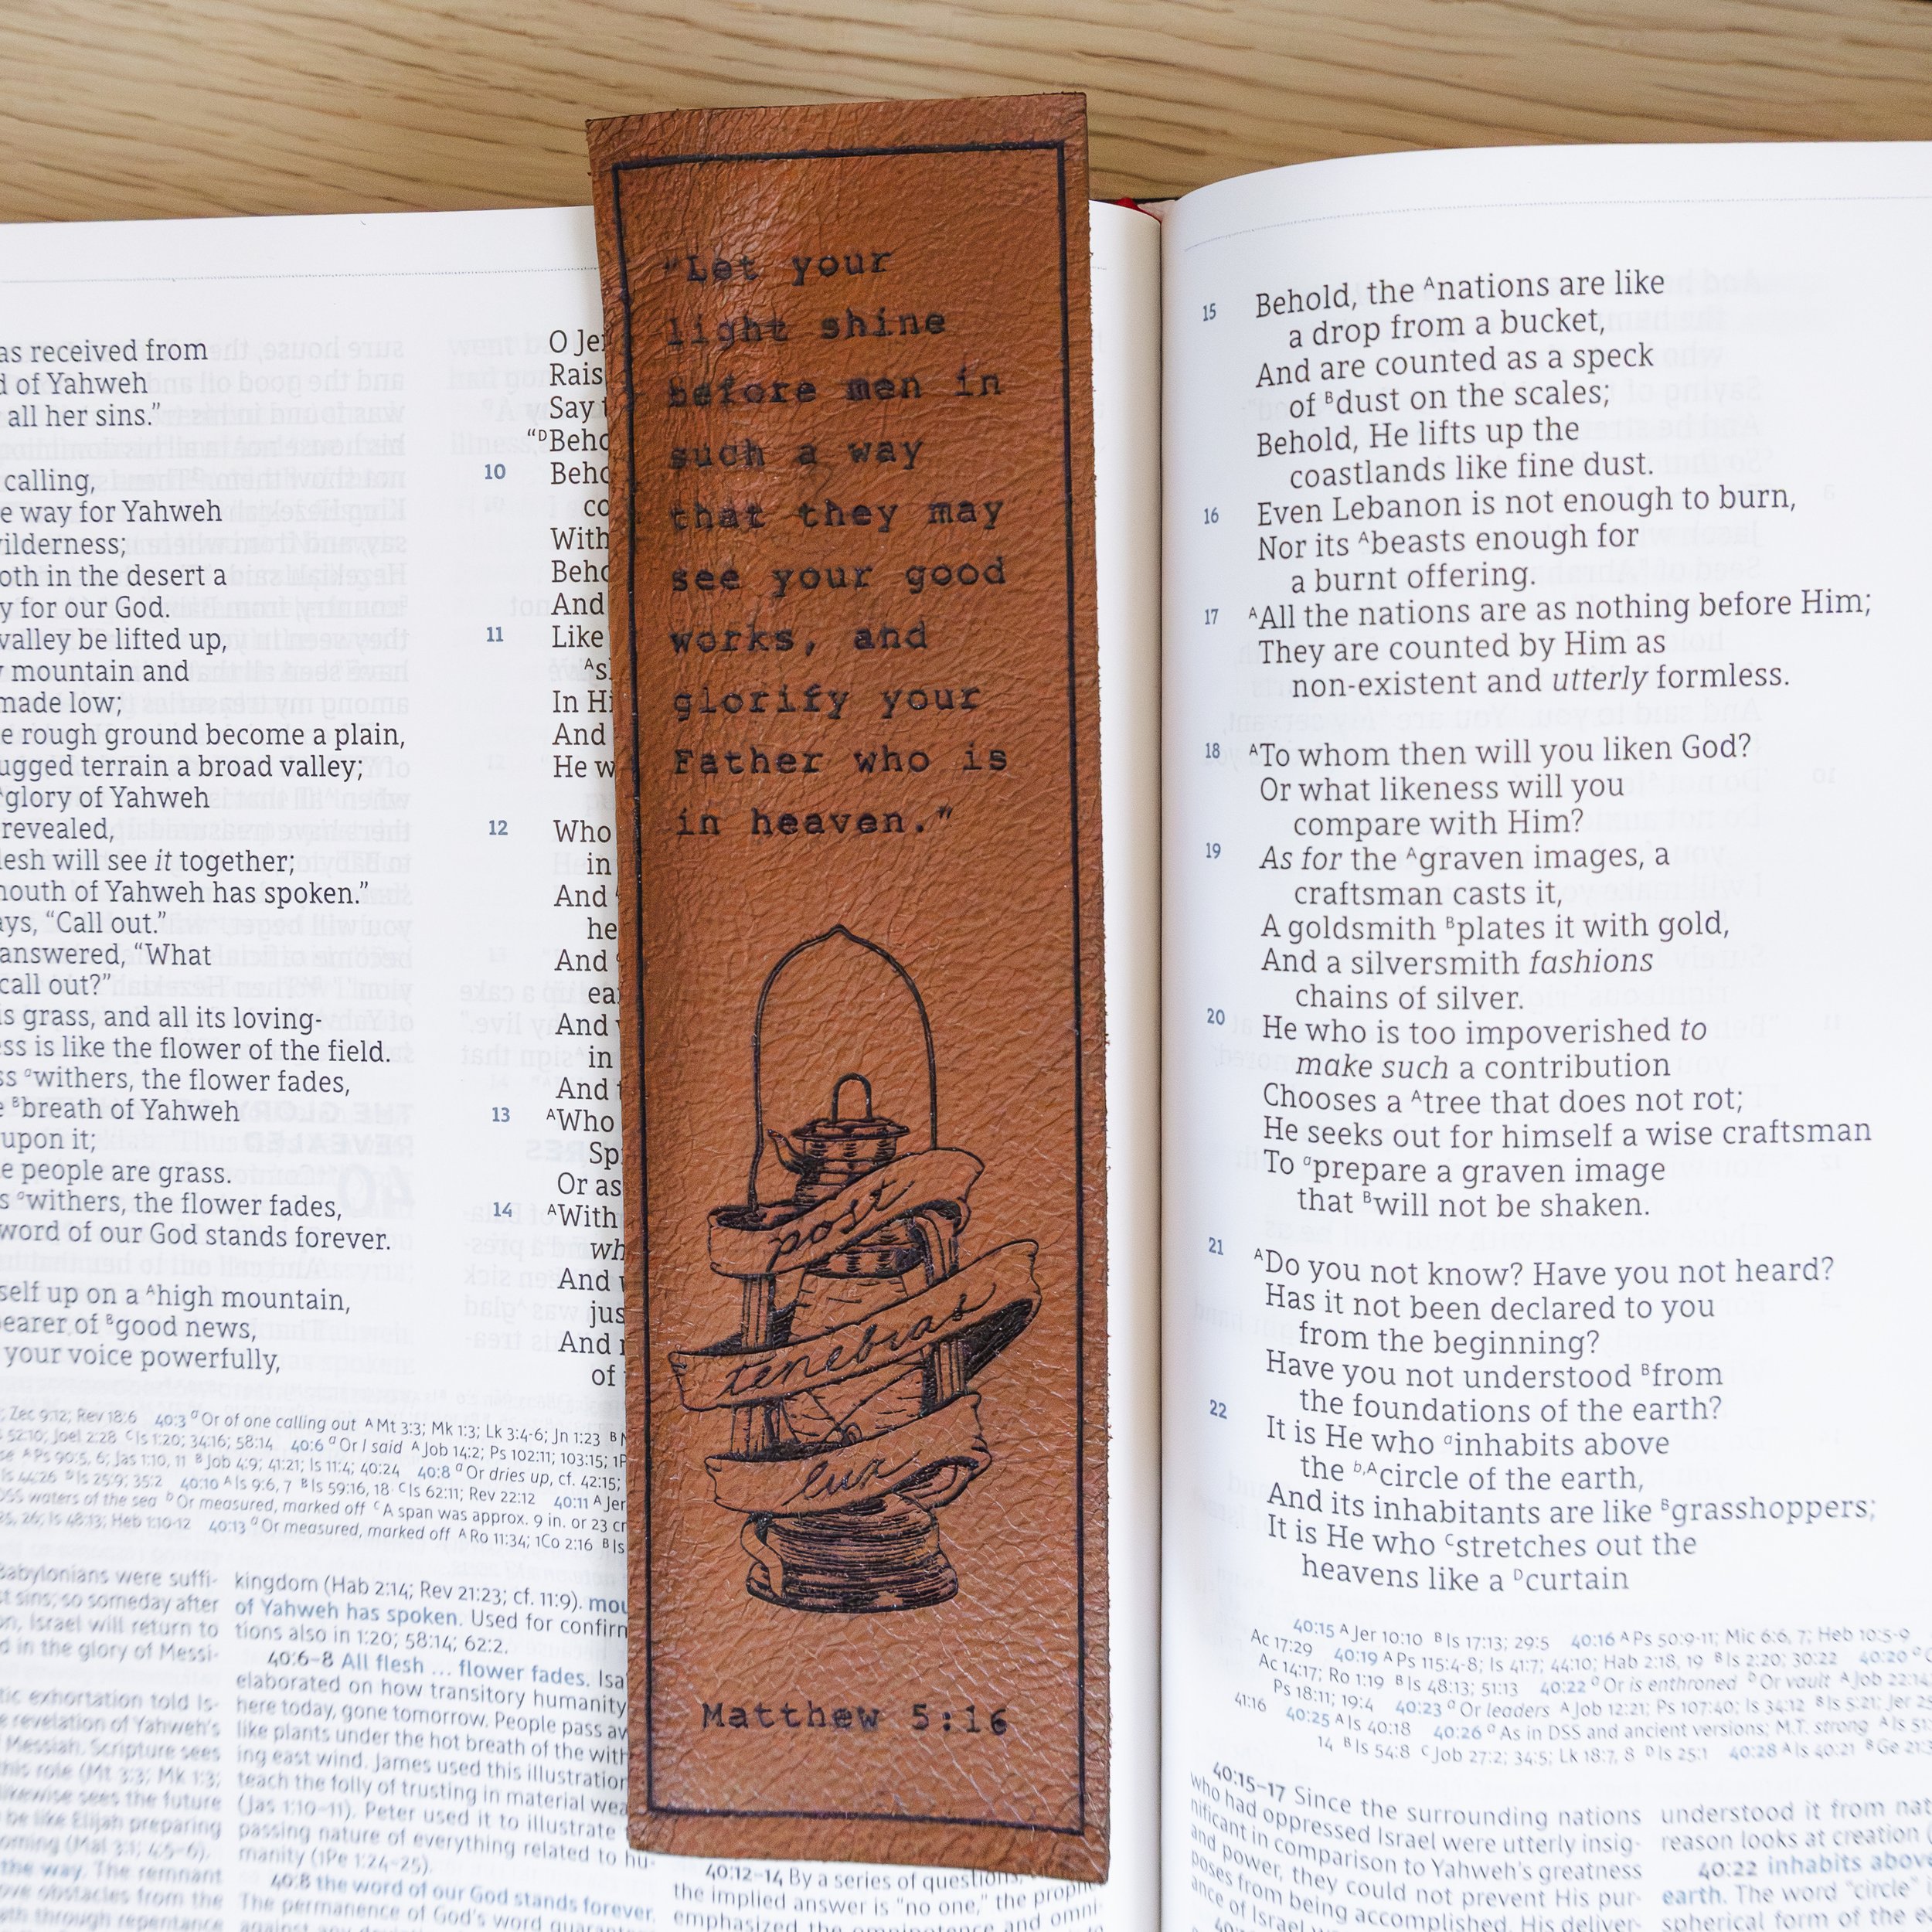 as received from
d of Yahweh
all her sins.”
calling,
e way for Yahweh
ilderness;
oth in the desert a
y for our God.
valley be lifted up,
y mountain and
made low;
e rough ground become a plain,
ugged terrain a broad valley;
glory of Yahweh
revealed,
lesh will see it together;
mouth of Yahweh has spoken.”
ays, “Call out.”
answered, “What
call out?”
is grass, and all its loving-
ess is like the flower of the field.
ss awithers, the flower fades,
e Bbreath of Yahweh
upon it;
e people are grass.
s awithers, the flower fades,
word of our God stands forever.
self up on a Ahigh mountain,
bearer of Bgood news,
your voice powerfully,
O Je
Rais
Say t
“DBeho
10 Beho
co
With
Beho
And
11 Like
As
In Hi
And
He w
12 Who
in
And
he
And
ea
And
in
And t
13 AWho
Sp
Or as
14 AWith
wh
And
jus
And
of
Zec 9:12; Rev 18:6 40:3 a Or of one calling out A Mt 3:3; Mk 1:3; Lk 3:4-6; Jn 1:23 B
52:10; Joel 2:28 C Is 1:20; 34:16; 58:14 40:6 a Or I said A Job 14:2; Ps 102:11; 103:15;
A Ps 90:5, 6; Jas 1:10, 11 B Job 4:9; 41:21; Is 11:4; 40:24 40:8 a Or dries up, cf. 42:15;
Is 44:26 D Is 25:9; 35:2 40:10 A Is 9:6, 7 B Is 59:16, 18 C Is 62:11; Rev 22:12 40:11 A Jer
DSS waters of the sea b Or measured, marked off c A span was approx. 9 in. or 23 c
26; Is 48:13; Heb 1:10-12 40:13 a Or measured, marked off A Ro 11:34; 1Co 2:16 B Is
Babylonians were suffi-
st sins; so someday after
on, Israel will return to
d in the glory of Messi-
tic exhortation told Is-
e revelation of Yahweh's
Messiah. Scripture sees
this role (Mt 3:3; Mk 1:3;
likewise sees the future
be like Elijah preparing
coming (Mal 3:1; 4:5-6).
the way. The remnant
ove obstacles from the
ath through repentance
kingdom (Hab 2:14; Rev 21:23; cf. 11:9). mou
of Yahweh has spoken. Used for confirm
tions also in 1:20; 58:14; 62:2.
40:6–8 All flesh … flower fades. Isa
elaborated on how transitory humanity
here today, gone tomorrow. People pass aw
like plants under the hot breath of the with
ing east wind. James used this illustration
teach the folly of trusting in material wea
(Jas 1:10–11). Peter used it to illustrate
passing nature of everything related to hu-
manity (1Pe 1:24–25).
40:8 the word of our God stands forever.
The permanence of God's word
40:12–14 By a series of questions,
the implied answer is “no one,” the prophe
emphasized the omnipotence and omni-
“Let your
light shine
before men in
such a way
that they may
see your good
works, and
glorify your
Father who is
in heaven.”
post
tenebras
lux
Matthew 5:16
15 Behold, the Anations are like
a drop from a bucket,
And are counted as a speck
of Bdust on the scales;
Behold, He lifts up the
coastlands like fine dust.
16 Even Lebanon is not enough to burn,
Nor its Abeasts enough for
a burnt offering.
17 AAll the nations are as nothing before Him;
They are counted by Him as
non-existent and utterly formless.
18 ATo whom then will you liken God?
Or what likeness will you
compare with Him?
19 As for the Agraven images, a
craftsman casts it,
A goldsmith Bplates it with gold,
And a silversmith fashions
chains of silver.
20 He who is too impoverished to
make such a contribution
Chooses a Atree that does not rot;
He seeks out for himself a wise craftsman
To aprepare a graven image
that Bwill not be shaken.
21 ADo you not know? Have you not heard?
Has it not been declared to you
from the beginning?
Have you not understood Bfrom
the foundations of the earth?
22 It is He who ainhabits above
the b,Acircle of the earth,
And its inhabitants are like Bgrasshoppers;
It is He who Cstretches out the
heavens like a Dcurtain
40:15 A Jer 10:10 B Is 17:13; 29:5 40:16 A Ps 50:9-11; Mic 6:6, 7; Heb 10:5-9
Ac 17:29 40:19 A Ps 115:4-8; Is 41:7; 44:10; Hab 2:18, 19 B Is 2:20; 30:22 40:20
Ac 14:17; Ro 1:19 B Is 48:13; 51:13 40:22 a Or is enthroned b Or vault A Job 22:14
Ps 18:11; 19:4 40:23 a Or leaders A Job 12:21; Ps 107:40; Is 34:12 B Is 5:21; Jer
41:16 40:25 A Is 40:18 40:26 a As in DSS and ancient versions; M.T. strong A Is
14 B Is 54:8 C Job 27:2; 34:5; Lk 18:7, 8 D Is 25:1 40:28 A Is 40:21 B Ge
40:15–17 Since the surrounding nations
who had oppressed Israel were utterly insig-
nificant in comparison to Yahweh's greatness
and power, they could not prevent His pur-
poses from being accomplished. His deliver-
ance of Israel
understood it from nat
reason looks at creation
40:22 inhabits above
earth. The word “circle”
spherical form of the